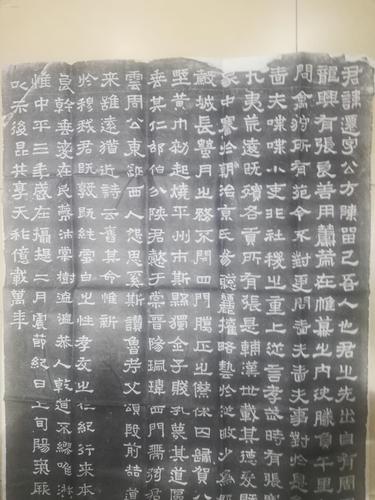 君諱遷字公方陳留己吾人也君之先出自有周
龍興有張良善用籌策在帷幕之內決勝負千里
問禽狩所有苑令不對更問嗇夫嗇夫事對於是
嗇夫喋喋小吏非社稷之重上從言孝武時有張
九夷荒遠既殯各貢所有張是輔漢世載其德爰既
家中謇於朝治京氏易聰麗權略藝於從畋少為郡
穀城長蠶月之務不閉四門臘正之僚休囚歸賀八
野黃巾初起燒平城市斯縣獨全子賤孔蔑其道區
垂其仁邵伯分陝君懿于棠晉陽珮瑋西門帶弦君
雲周公東征西人怨思奚斯讚魯考父頌殷前喆遺
來雖遠猶近詩云舊國其命惟新
於穆我君既敦既純雪白之性孝友之仁紀行來本
良幹垂愛在民蔽沛棠樹溫溫恭人乾道不繆唯淑
惟中平三年歲在攝提二月震節紀日上旬陽氣厥
以示後昆共享天祚億載萬年